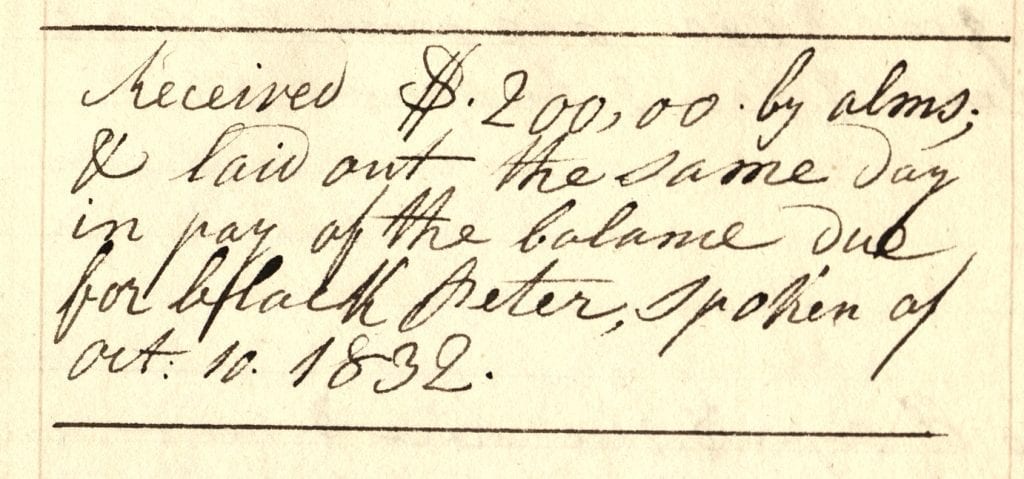 Received $. 200,00 by alms;
& laid out the same day
in pay of the balance due
for black Peter, spoken of
oct: 10. 1832.